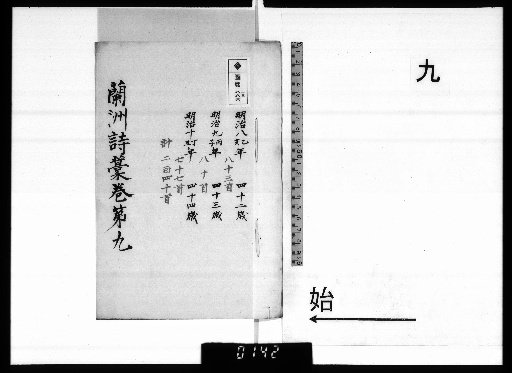 九
始
明治八乙亥年 四十二歳
八十三首
明治九丙子年 四十三歳
八十首
明治十丁丑年 四十四歳
七十七首
計 二百四十首
蘭洲詩藁巻第九
0142